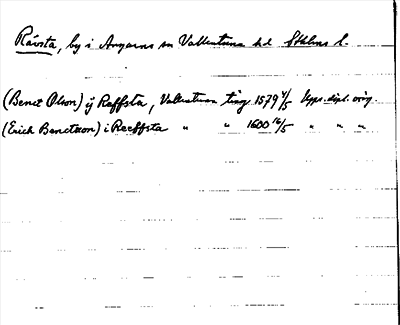 Råvsta, by i Angarns sn Vallentuna hd Sthlms l.
(Benct Olson) ij Raffsta, Vallentuna ting 1579 4/5 Upps. dipl. orig.
(Erich Benctzon) i Reeffsta " " 1600 16/5 " " "